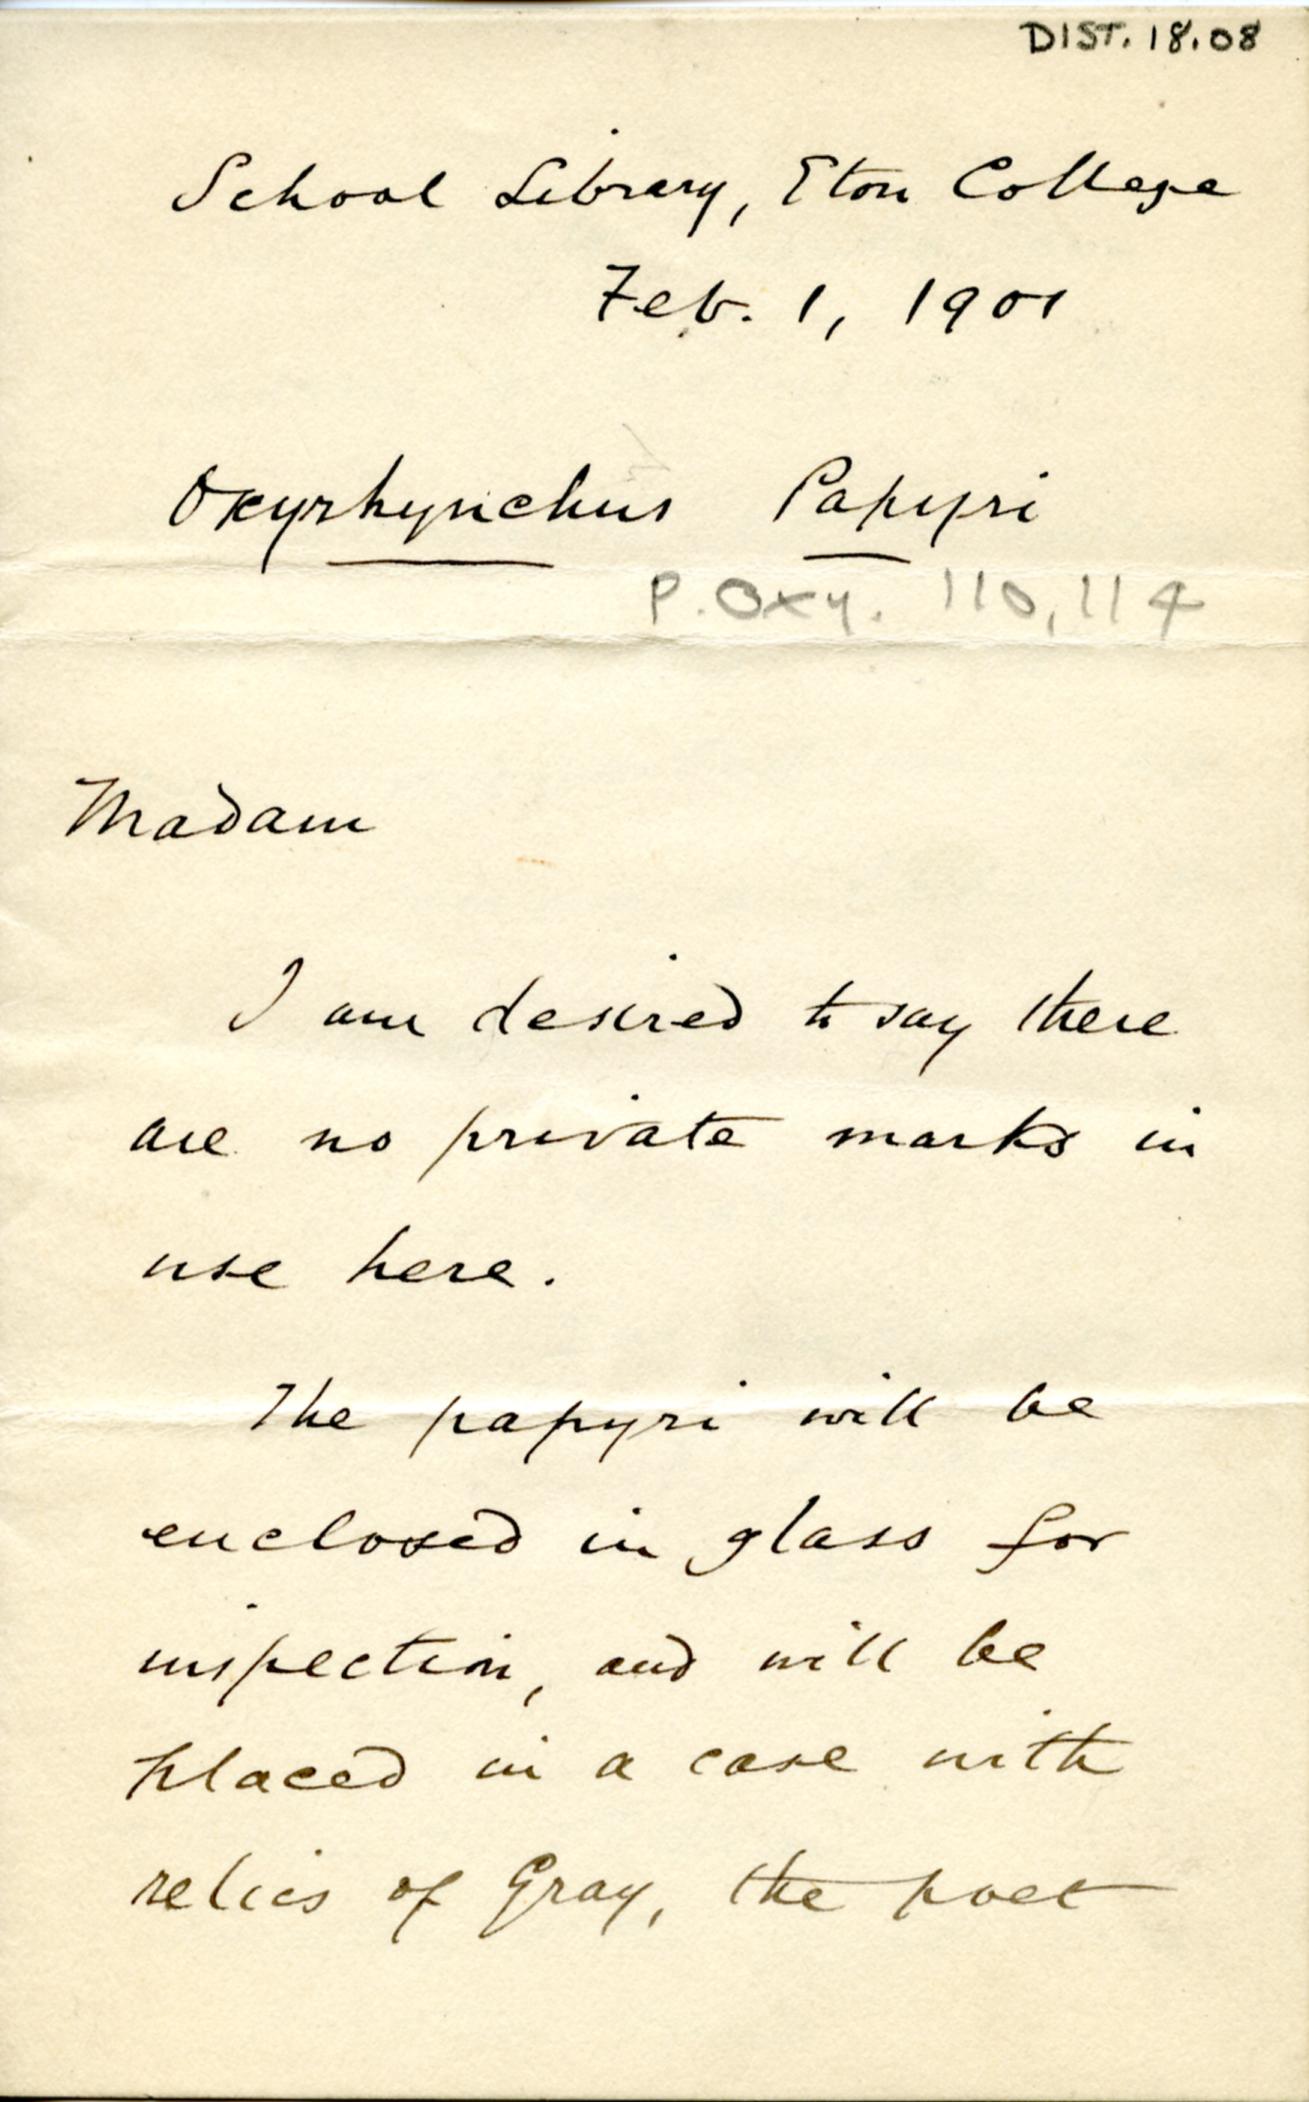 DIST. 18.08
School Library, Eton College
Feb. 1, 1901
Oxyrhynchus Papyri
P. Oxy. 110, 114
Madam
I am desired to say there
are no private marks in
use here.
The papyri will be
enclosed in glass for
inspection, and will be
placed in a case with
relics of Gray, the poet